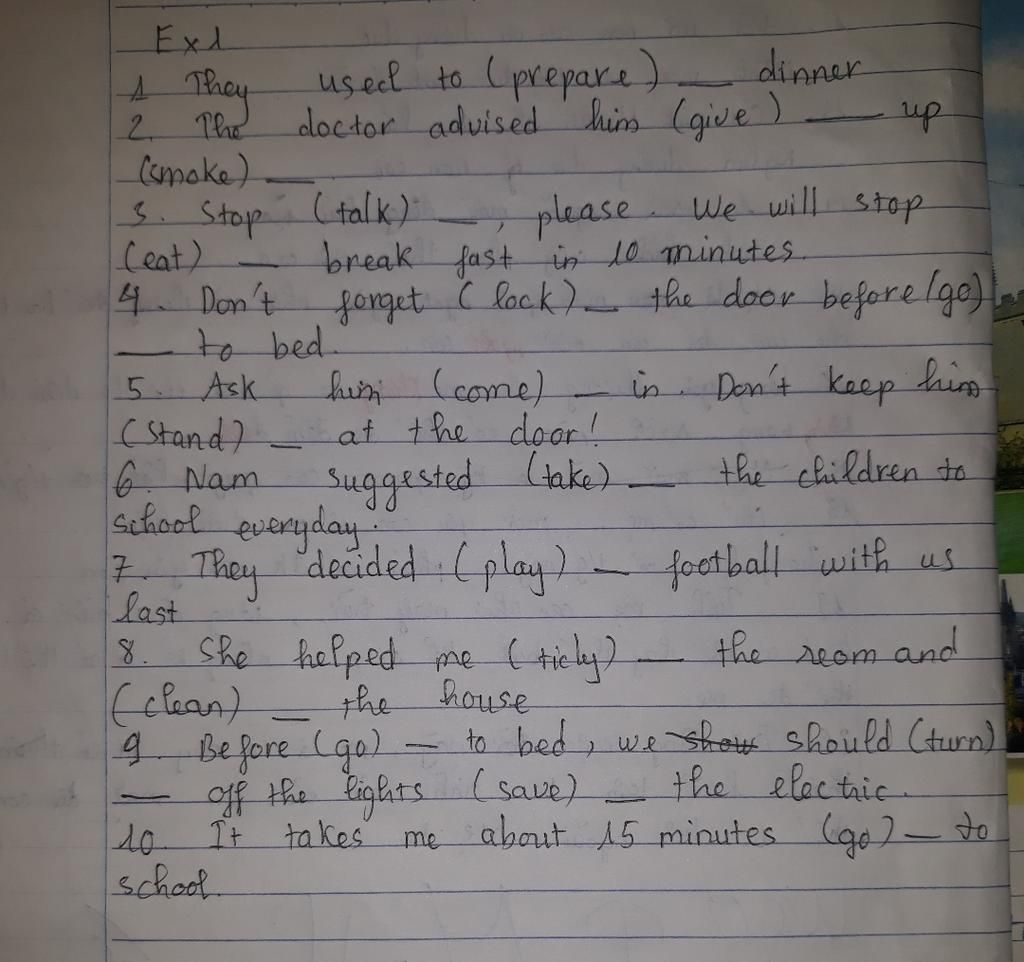 Ex1
1 They used to (prepare) __ dinner
2. The doctor advised him (give) __ up
(smoke) __.
3. Stop (talk) __, please. We will stop
(eat) __ break fast in 10 minutes.
4. Don't forget (lock) __ the door before (go)
__ to bed.
5. Ask him (come) __ in. Don't keep him
(stand) __ at the door!
6. Nam suggested (take) __ the children to
school everyday.
7. They decided (play) __ football with us
last
8. She helped me (tidy) __ the room and
(clean) __ the house
9 Before (go) __ to bed, we show should (turn)
__ off the lights (save) __ the electric.
10. It takes me about 15 minutes (go) __ to
school.